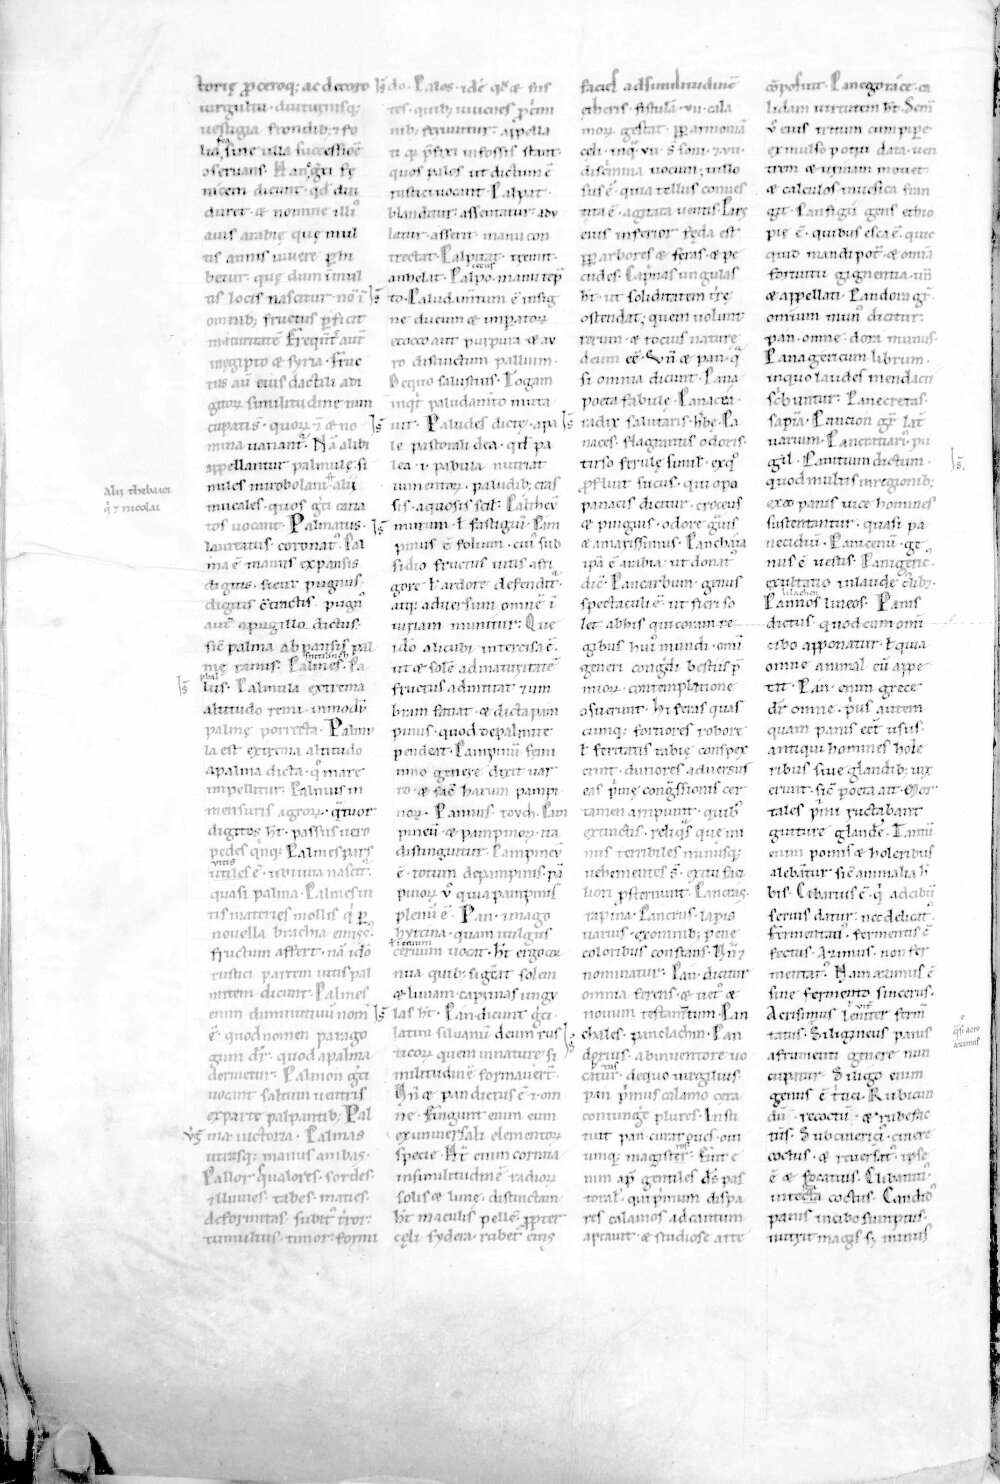 torię proceroq; ac decoro
uirgultu diuturnisq;
uestigia frondib; & fo
lia sine ulla successione
oseruans. Hanc greci fę
nicem dicunt. qd diu
duret. & nomine illi'
auis arabię quę mul
tis annis uiuere perhi
betur. quę dum in mul
tis locis nascitur non in
omnib; fructus perficit
maturitatē. Frequenter aut
in egipto & syria. Fruc
tus aū eius dactili a di
gitorum similitudine nun
cupati s. quorum & no
mina uariant. Nā alibi
appellantur palmulę si
miles mirobolani. alii
nucales. quos greci caria
tos uocant. Palmatus.
laureatus. coronat'. Pal
ma ē manus expansis
digitis. sicut pugnus.
digitis cōtractis. pugn'
aut a pugillo dictus.
sic palma ab pansis pal
mę ramis. Palmes. Pa
lus. Palmula extrema
altitudo remi. in modū
palmę porrecta. Palmu
la est extrema altitudo
a palma dicta. q mare
impellitur. Palmus in
mensuris agrorum. quattuor
digitos ht. passus uero
pedes quinq;. Palmes pars
utiles ē. ubi uua nascit.
quasi palma. Palmes ui
tis materies mollis qui per
nouella brachia emissus
fructum affert. nā ideo
rustici partem uitis pal
mitem dicunt. Palmes
enim diminitiuū nom
ē. quod nomen parago
gum dr. quod a palma
deriuetur. Palmon greci
uocant saltum uentris
ex parte palpantib; Pal
ma uictoria. Palmas
utrasq; manus ambas.
Pallor. qualores. sordes.
illuuies. tabes. macies.
deformitas. subit' terror.
tumultus. timor. formi
do. Palos. idē quod & fus
tes. quib; iuuenes

ti q prefixi in fossis stant.
quos palos ut dictum ē
rustici uocant. Palpat.
blanditur. assentatur. adu
latur. asserit. manu con
trectat. Palpitat. tremit.
anhelat. Palpo. manu temp
to. Paludamtum ē insig
ne ducum & imperatorum
ex cocco aut purpura & au
ro distinctum pallium.
De quo salustius. Togam
inqt paludamto muta
uit. Paludes dictę. a pa
le pastorali dea. quod pa
lea i pabula nutriat
iumentorum. paludib; cras
sis. aquosis scil. Palthen
martium t fastigiū. Pam
pinus ē folium. cui' sub
sidio fructus uitis a fri
gore t ardore defenditur.
atq; aduersum omnē in
iuriam munitur. Que
ideo alicubi intercisa ē.
ut & solē ad maturitatē
fructus admittat & um
bram faciat. & dicta pam
pinus. quod de palmite
pendeat. Pampinū femi
nino genere dixit uar
ro & facit harum pampi
norum. Pannus. touch. Pam
pineū & pampinorum ita
distinguitur. Pampineū
ē totum de pampinis. pam
pinorum u quia pampinis
plenū ē. Pan. imago
hyrcina. quam uulgus
ceruum uocat. ht ergo cor
nua quib; significat solem
& lunam. caprinas ungu
las ht. Pan dicunt greci
latini siluanū. deum rus
ticorum quem in naturę si
militudinē formauert.
Un & pan dictus ē. i om
ne. Fingunt enim eum
ex uniuersali elementorum
specie. Ht enim cornua
in similitudinē radiorum
solis & lunę. distinctam
ht maculis pellē. propter
cęli sydera. rubet eius
facies ad similitudinē
etheris. fistulā vii. cala
morum gestat. propter armoniā
celi. in qua vii s soni & vii.
discrimina uocum. uillo
sus ē. quia tellus conues
tita ē. agitata uentis. Pars
eius inferior fęda est
propter arbores & feras & pe
cudes. Caprinas ungulas
ht. ut soliditatem terrę
ostendat; quem uolunt
rerum & totius naturę
deum eē. Un & pan. q
si omnia dicunt. Pana
poeta fabule. Panacea.
radix salutaris. herbę. Pa
naces. flagrantis odoris.
tirso ferulę simil. ex quo
profluit sucus. qui opo
panacis dicitur. croceus
& pinguis. odore grauis
& amarissimus. Panchaia
ipa ē arabia. ut donat'
dic. Pancarbum. genus
spectaculi ē. ut fieri so
let ab his qui coram re
gibus hui' mundi. omni
generi congredi bestiis prę
miorum contemplatione
osuerunt. Hi feras quas
cumq; fortiores robore
t feritatis rabię conspex
erint. duriores aduersus
eas primę congressionis cer
tamen arripiunt. quib'
extinctis. reliquas que mi
nus terribiles minusq;
uehementes s. exitu faci
liori prosternunt. Panctas.
rapina. Pancrus. lapis
uarius. ex omnib; pene
coloribus constans. Un &
nominatur. Pan dicitur
omnia ferens. & uet' &
nouum testamtum. Pan
chales. panclachin. Pan
dorius. ab inuentore uo
catur. de quo uirgilius.
pan primus calamo cera
coniunge plures. Insti
tuit pan curat oues. oui
umq; magistros. Fuit e
nim ap gentiles ds pas
toral. qui primum dispa
res calamos ad cantum
aptauit. & studiose arte
cōposuit. Panegorace. ca
lidam uirtutem ht. Semen
u eius tritum cum pipere
ex mulso potui data. uen
trem & urinam mouet
& calculos in uesica fran
git. Panfigū gens ethio
pię ē. quibus esca ē. quic
quid mandi potest. & omnia
fortuitu gignentia. un
& appellati. Pandora gr.
omnium mun' dicitur.
pan. omne. dora munus.
Panagericum librum.
in quo laudes mendacii
scribuntur. Panecretas.
sapia. Pancion gr. lat
uarium. Pancratiari' pu
gil. Panitium dictum.
quod multis in regionib;
ex eo panis uice homines
sustentantur. quasi pa
niciū. Panicenū. ge
nus ē uestis. Panigeric.
exultatio in laude celebr.
Pannos lineos. Panis
dictus. quod cum omi
cibo apponatur. t quia
omne animal eū appe
tit. Pan. enim grece
dr omne. prius autem
quam panis eēt usus.
antiqui homines hole
ribus siue glandib; uix
erunt. sic poeta ait. Mor
tales primi ructabant
gutture glandē. Tantū
enim pomis & holeribus
alebantur sic animalia h
bis. Cibarius ē. q ad cibū
seruis datur. nec delicat'.
Fermentati'. fermentis cō
fectus. Azimus. non fer
mentat'. Nam azimus ē
sine fermento sincerus.
Acrisimus leuiter fermen
tatus. Siligineus panis
a frumenti genere nun
cupatur. Siligo enim
genus ē tritici. Rubicun
du. recoctū. & rubefac
tus. Subcinerici'. cinere
coctus. & reuersat'. ipse
ē & focatius. Clibanici'.
in testa coctus. Candid'
panis in cibo sumptus.
nutrit magis sz minus
Alii thebaici
q & nicolai
qsi acro
azimus